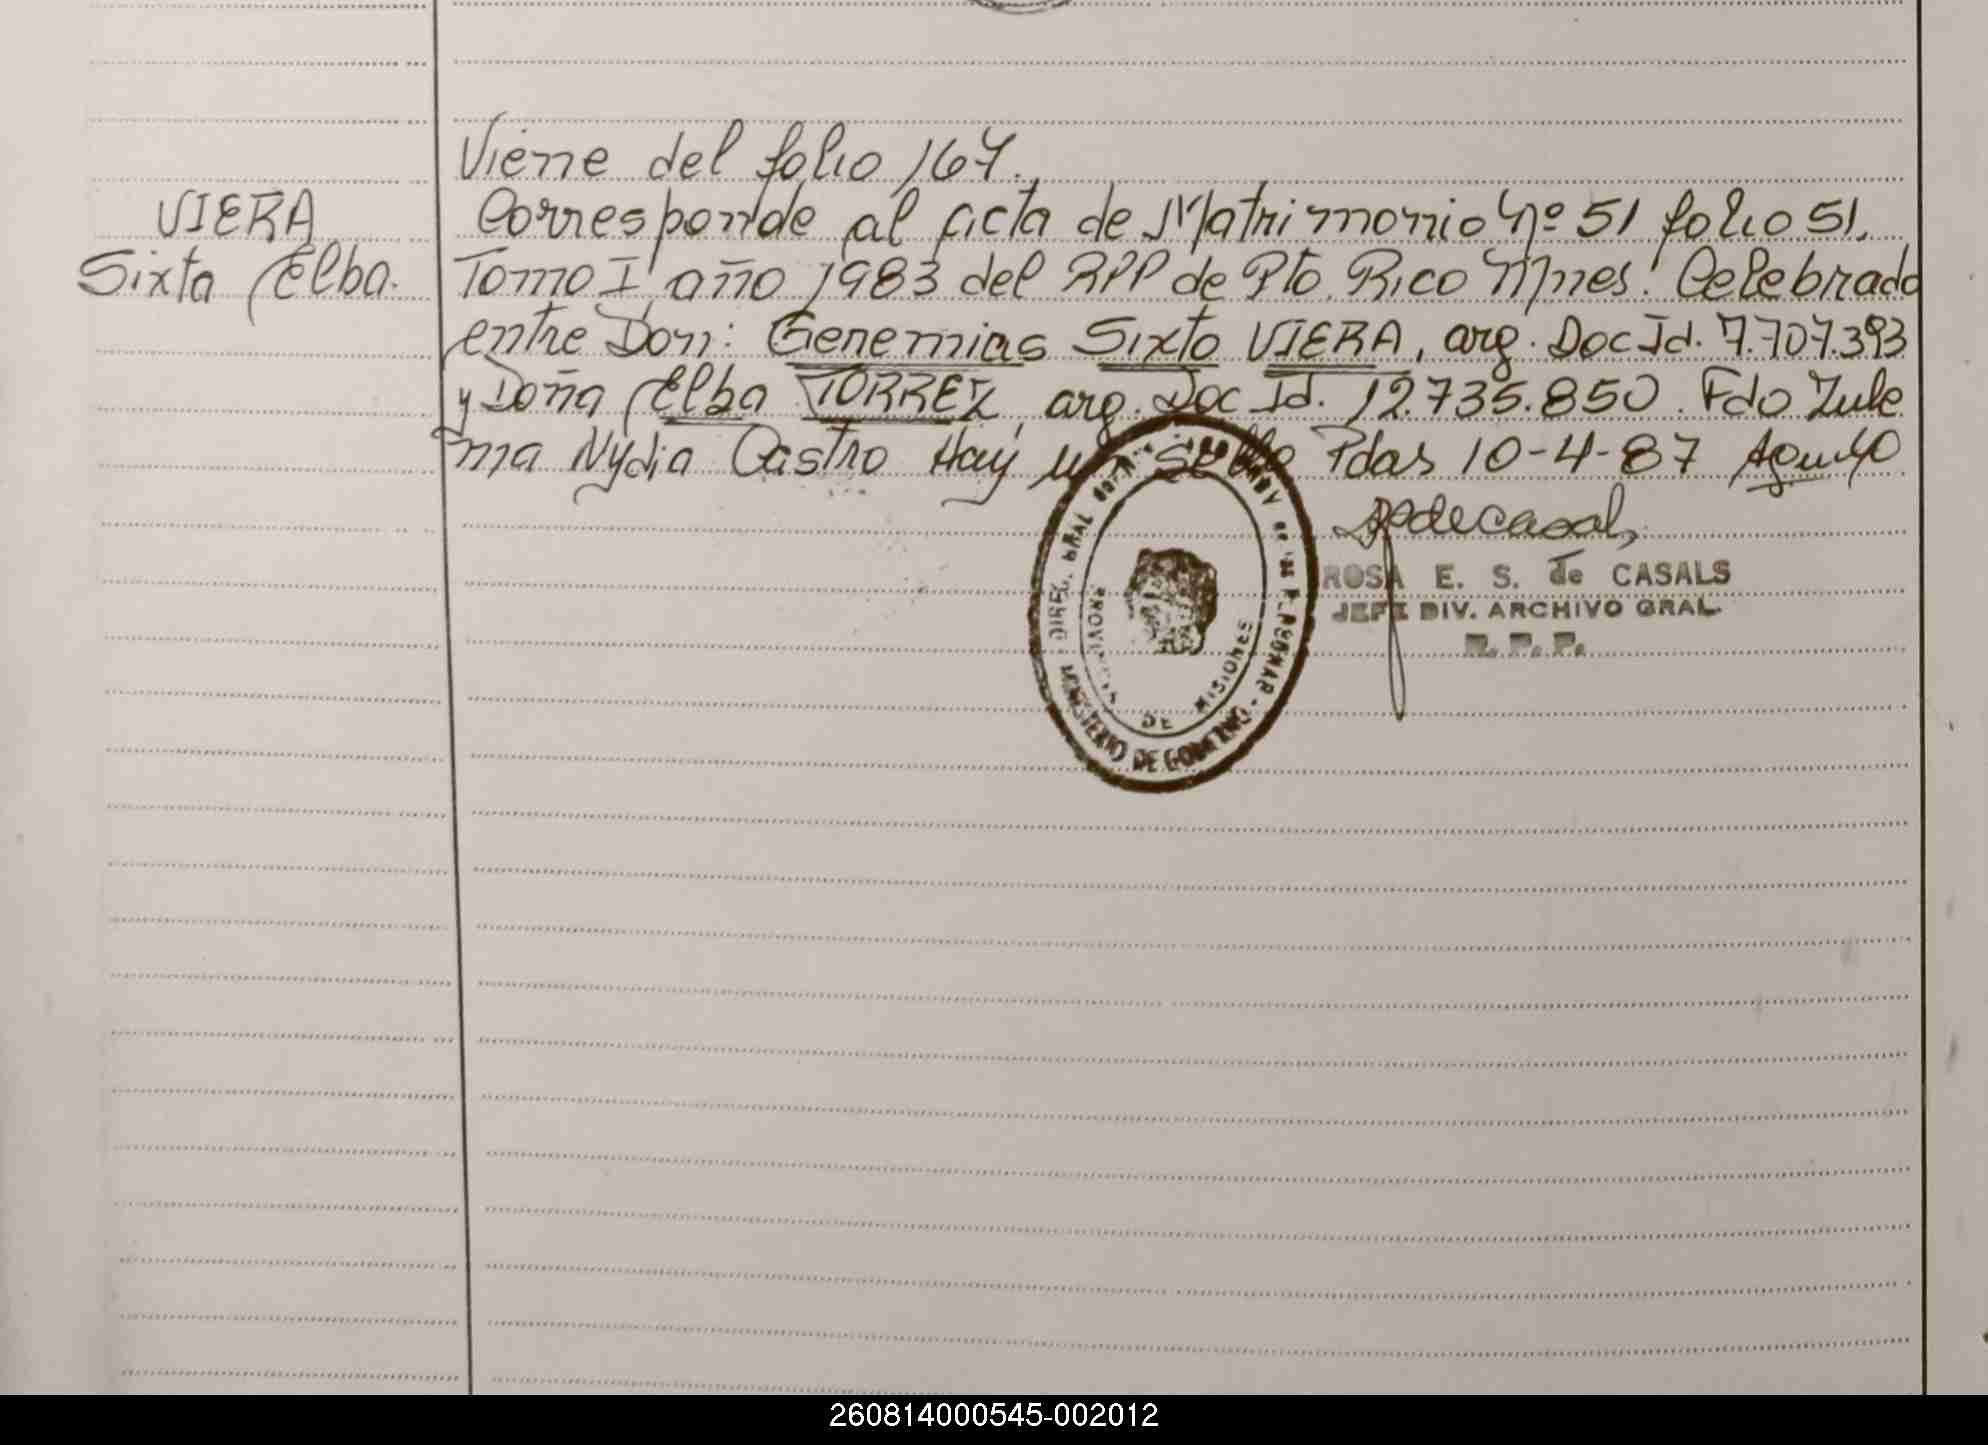 Viene del folio 167.
VIERA
Sixta Elba.
Corresponde al acta de Matrimonio Nº 51 folio 51.
Tomo I año 1983 del RPP de Pto. Rico Mnes. Celebrado
entre Don: Genemias Sixto VIERA, arg. Doc Id. 7.707.393
y Doña Elba TORREZ, arg. Doc Id. 12.735.850. Fdo Zule
ma Nydia Castro Hay un Sello Pdas 10-4-87
ROSA E. S. de CASALS
JEFE DIV. ARCHIVO GRAL.
R. P. P.
DIREC. GRAL
PROVINCIA DE MISIONES
MINISTERIO DE GOBIERNO
260814000545-002012